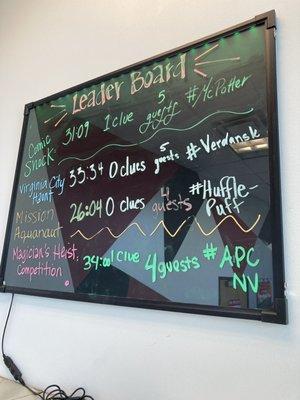 Leader Board
Comic Shock 31:09 1 clue 5 guests #McPotter
Virginia City Haunt 33:34 0 clues 5 guests #Verdansk
Mission Aquanaut 26:04 0 clues 4 guests #Huffle-Puff
Magician's Heist: Competition 34:00 1 clue 4 guests #APC NV